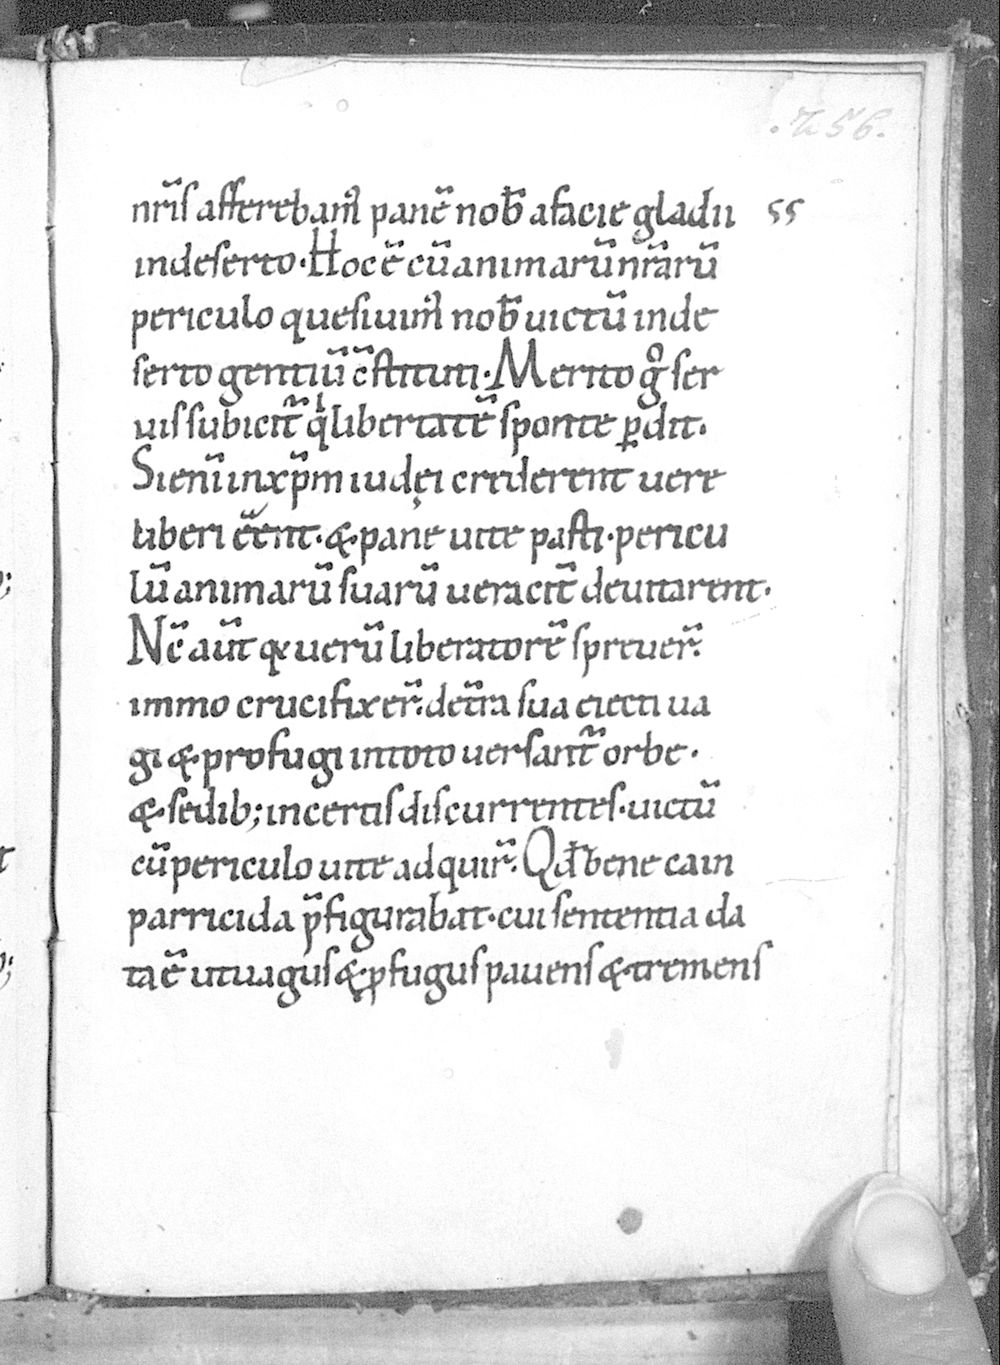 .256.
nr̄is afferebam᷒ panē nob̄ afacie gladii 55
indeserto. Hoc ē cū animarū nr̄arū
periculo quesiuim᷒ nob̄ uictū inde
serto gentiū c̄stituti. Merito gͦ ser
uis subicit᷑ qͥ libertatē sponte ꝑdit.
Si enī in xp̄m iudęi crederent uere
liberi ēent. & pane uite pasti. pericu
lū animarū suarū ueracit᷑ deuitarent.
Nc̄ aūt qꝛ uerū liberatorē spreuer̄.
immo crucifixer̄. de tr̄a sua eiecti ua
gi & profugi intoto uersant᷑ orbe.
& sedib; incertis discurrentes. uictū
cū periculo uite adquir̄. Qd̄ bene cain
parricida p̄figurabat. cui sententia da
ta ē ut uagus & ꝓfugus pauens & tremens